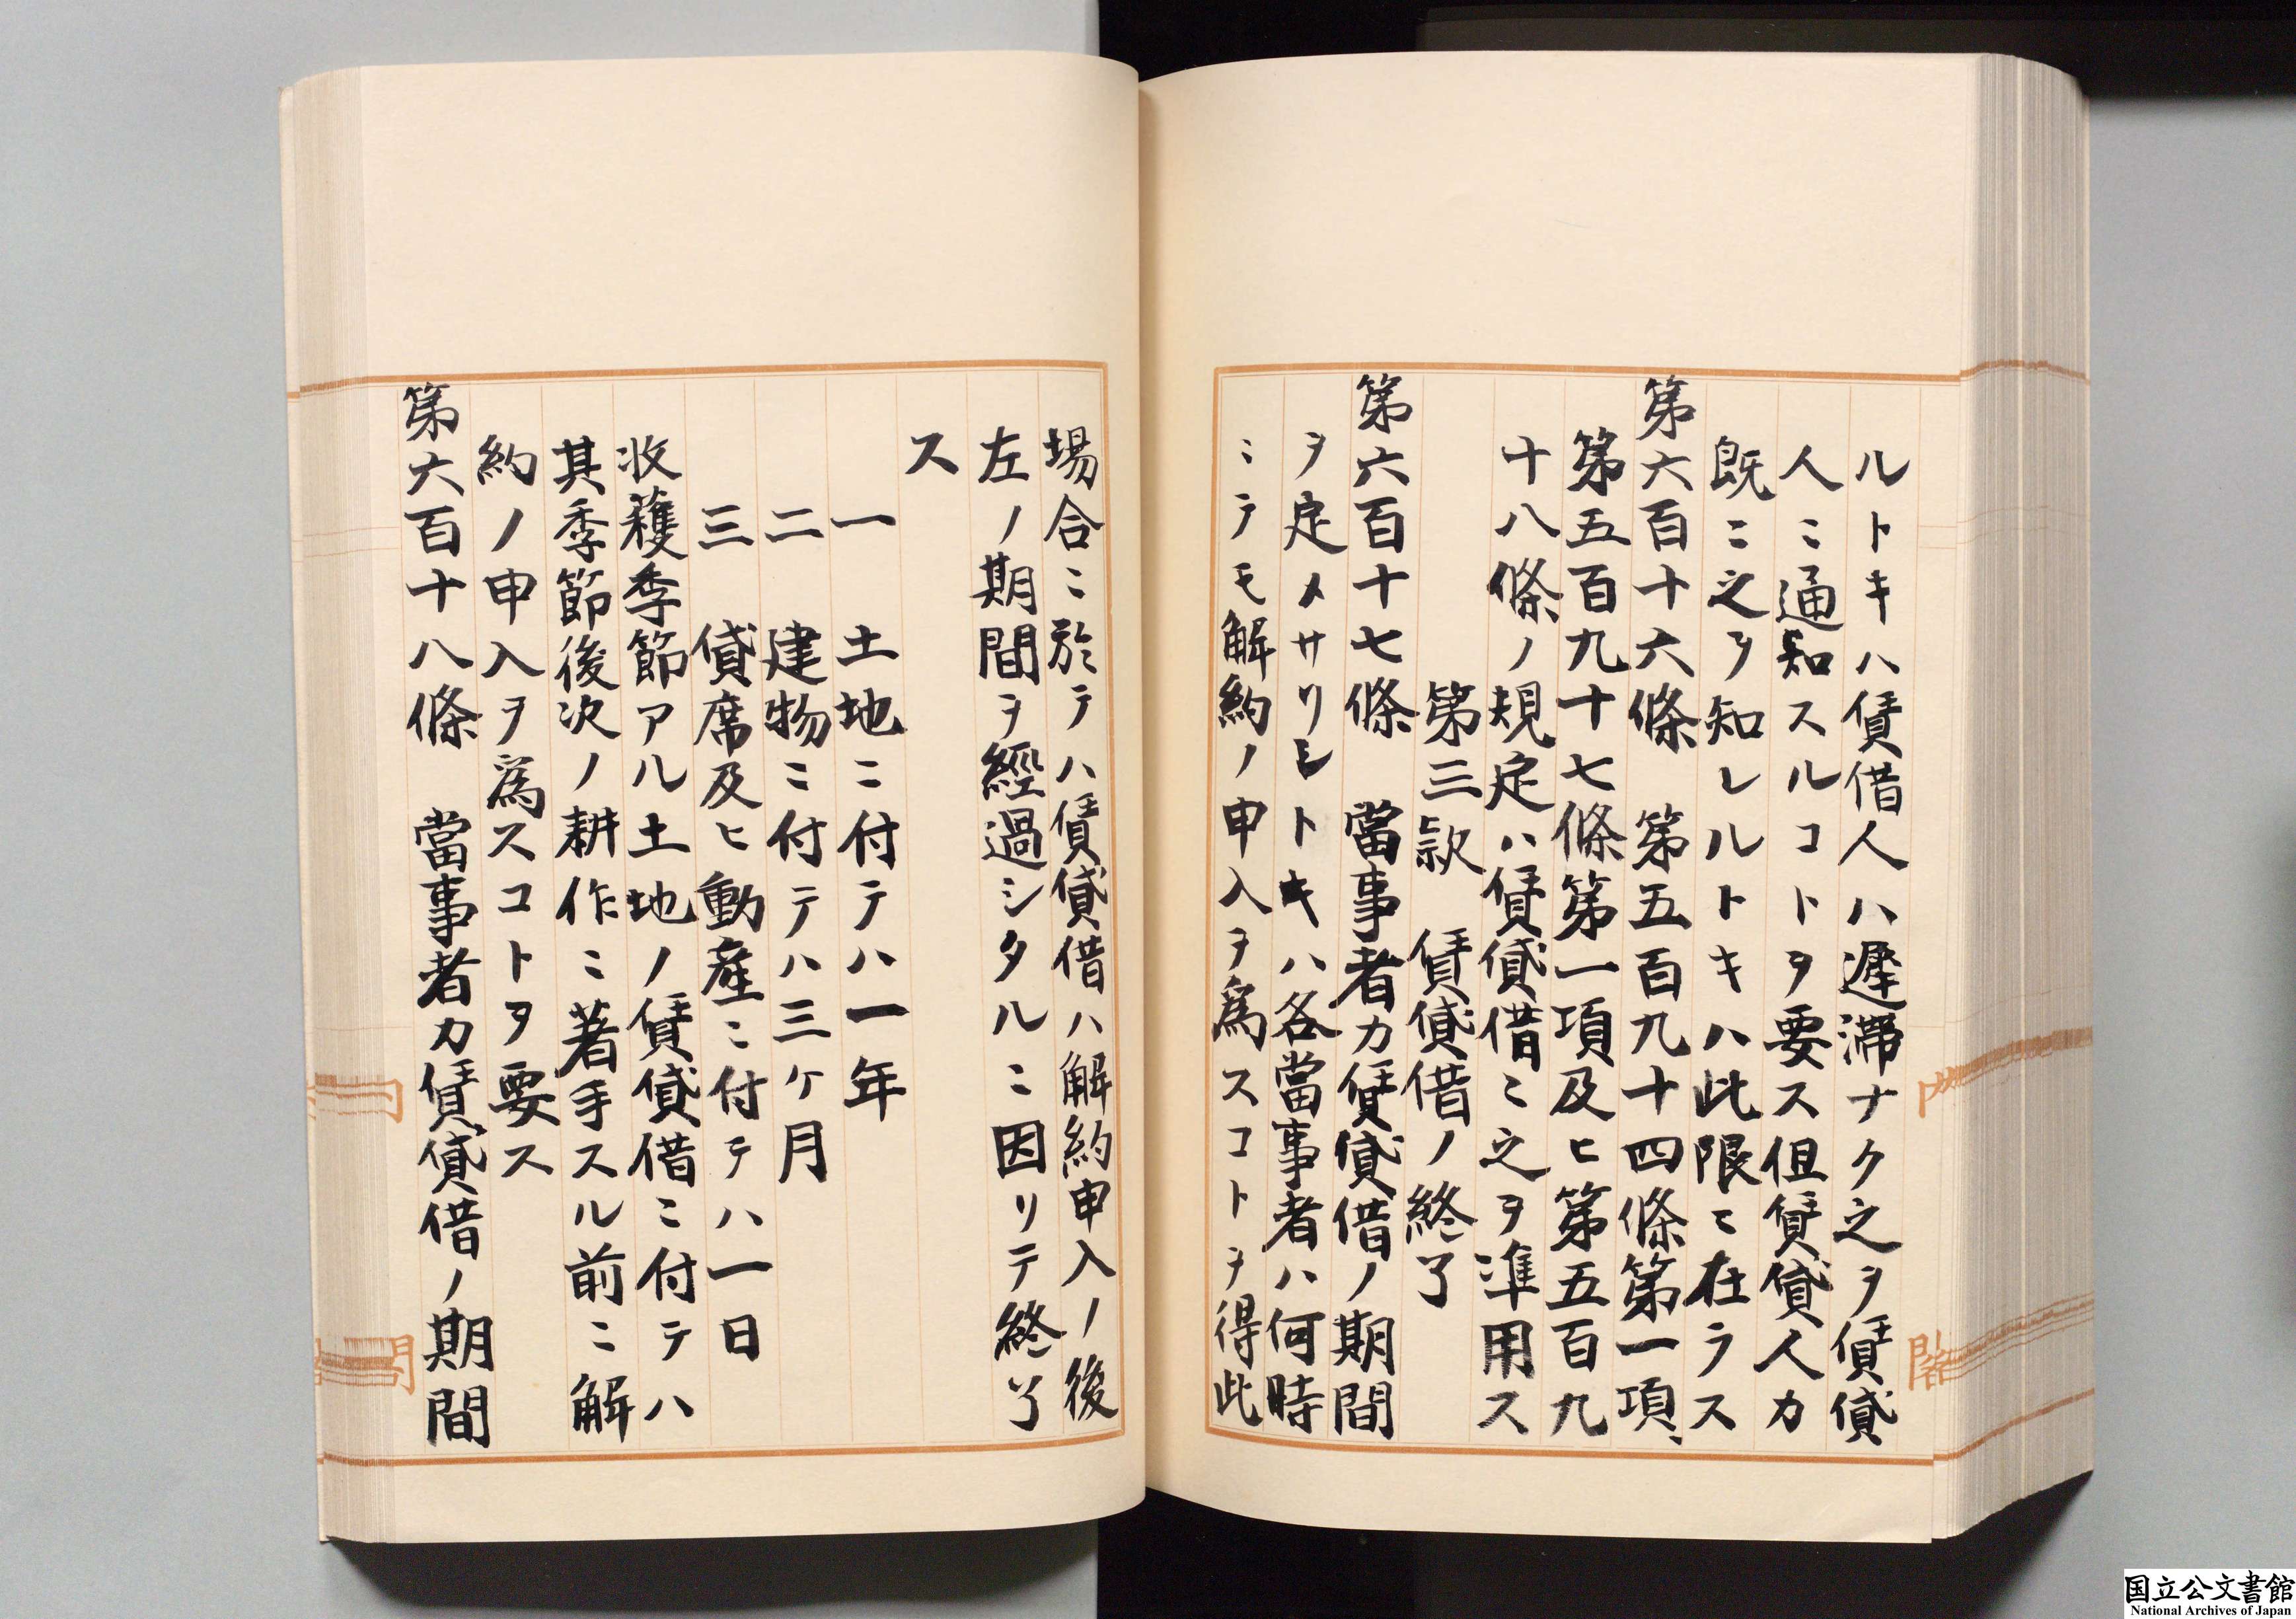 ルトキハ賃借人ハ遲滯ナク之ヲ賃貸
人ニ通知スルコトヲ要ス但賃貸人カ
既ニ之ヲ知レルトキハ此限ニ在ラス
第六百十六條　第五百九十四條第一項、
第五百九十七條第一項及ヒ第五百九
十八條ノ規定ハ賃貸借ニ之ヲ準用ス
第三款　賃貸借ノ終了
第六百十七條　當事者カ賃貸借ノ期間
ヲ定メサリシトキハ各當事者ハ何時
ニテモ解約ノ申入ヲ爲スコトヲ得此
場合ニ於テハ賃貸借ハ解約申入ノ後
左ノ期間ヲ經過シタルニ因リテ終了
ス
一　土地ニ付テハ一年
二　建物ニ付テハ三ケ月
三　貸席及ヒ動產ニ付テハ一日
收穫季節アル土地ノ賃貸借ニ付テハ
其季節後次ノ耕作ニ著手スル前ニ解
約ノ申入ヲ爲スコトヲ要ス
第六百十八條　當事者カ賃貸借ノ期間
内
閣
国立公文書館
National Archives of Japan